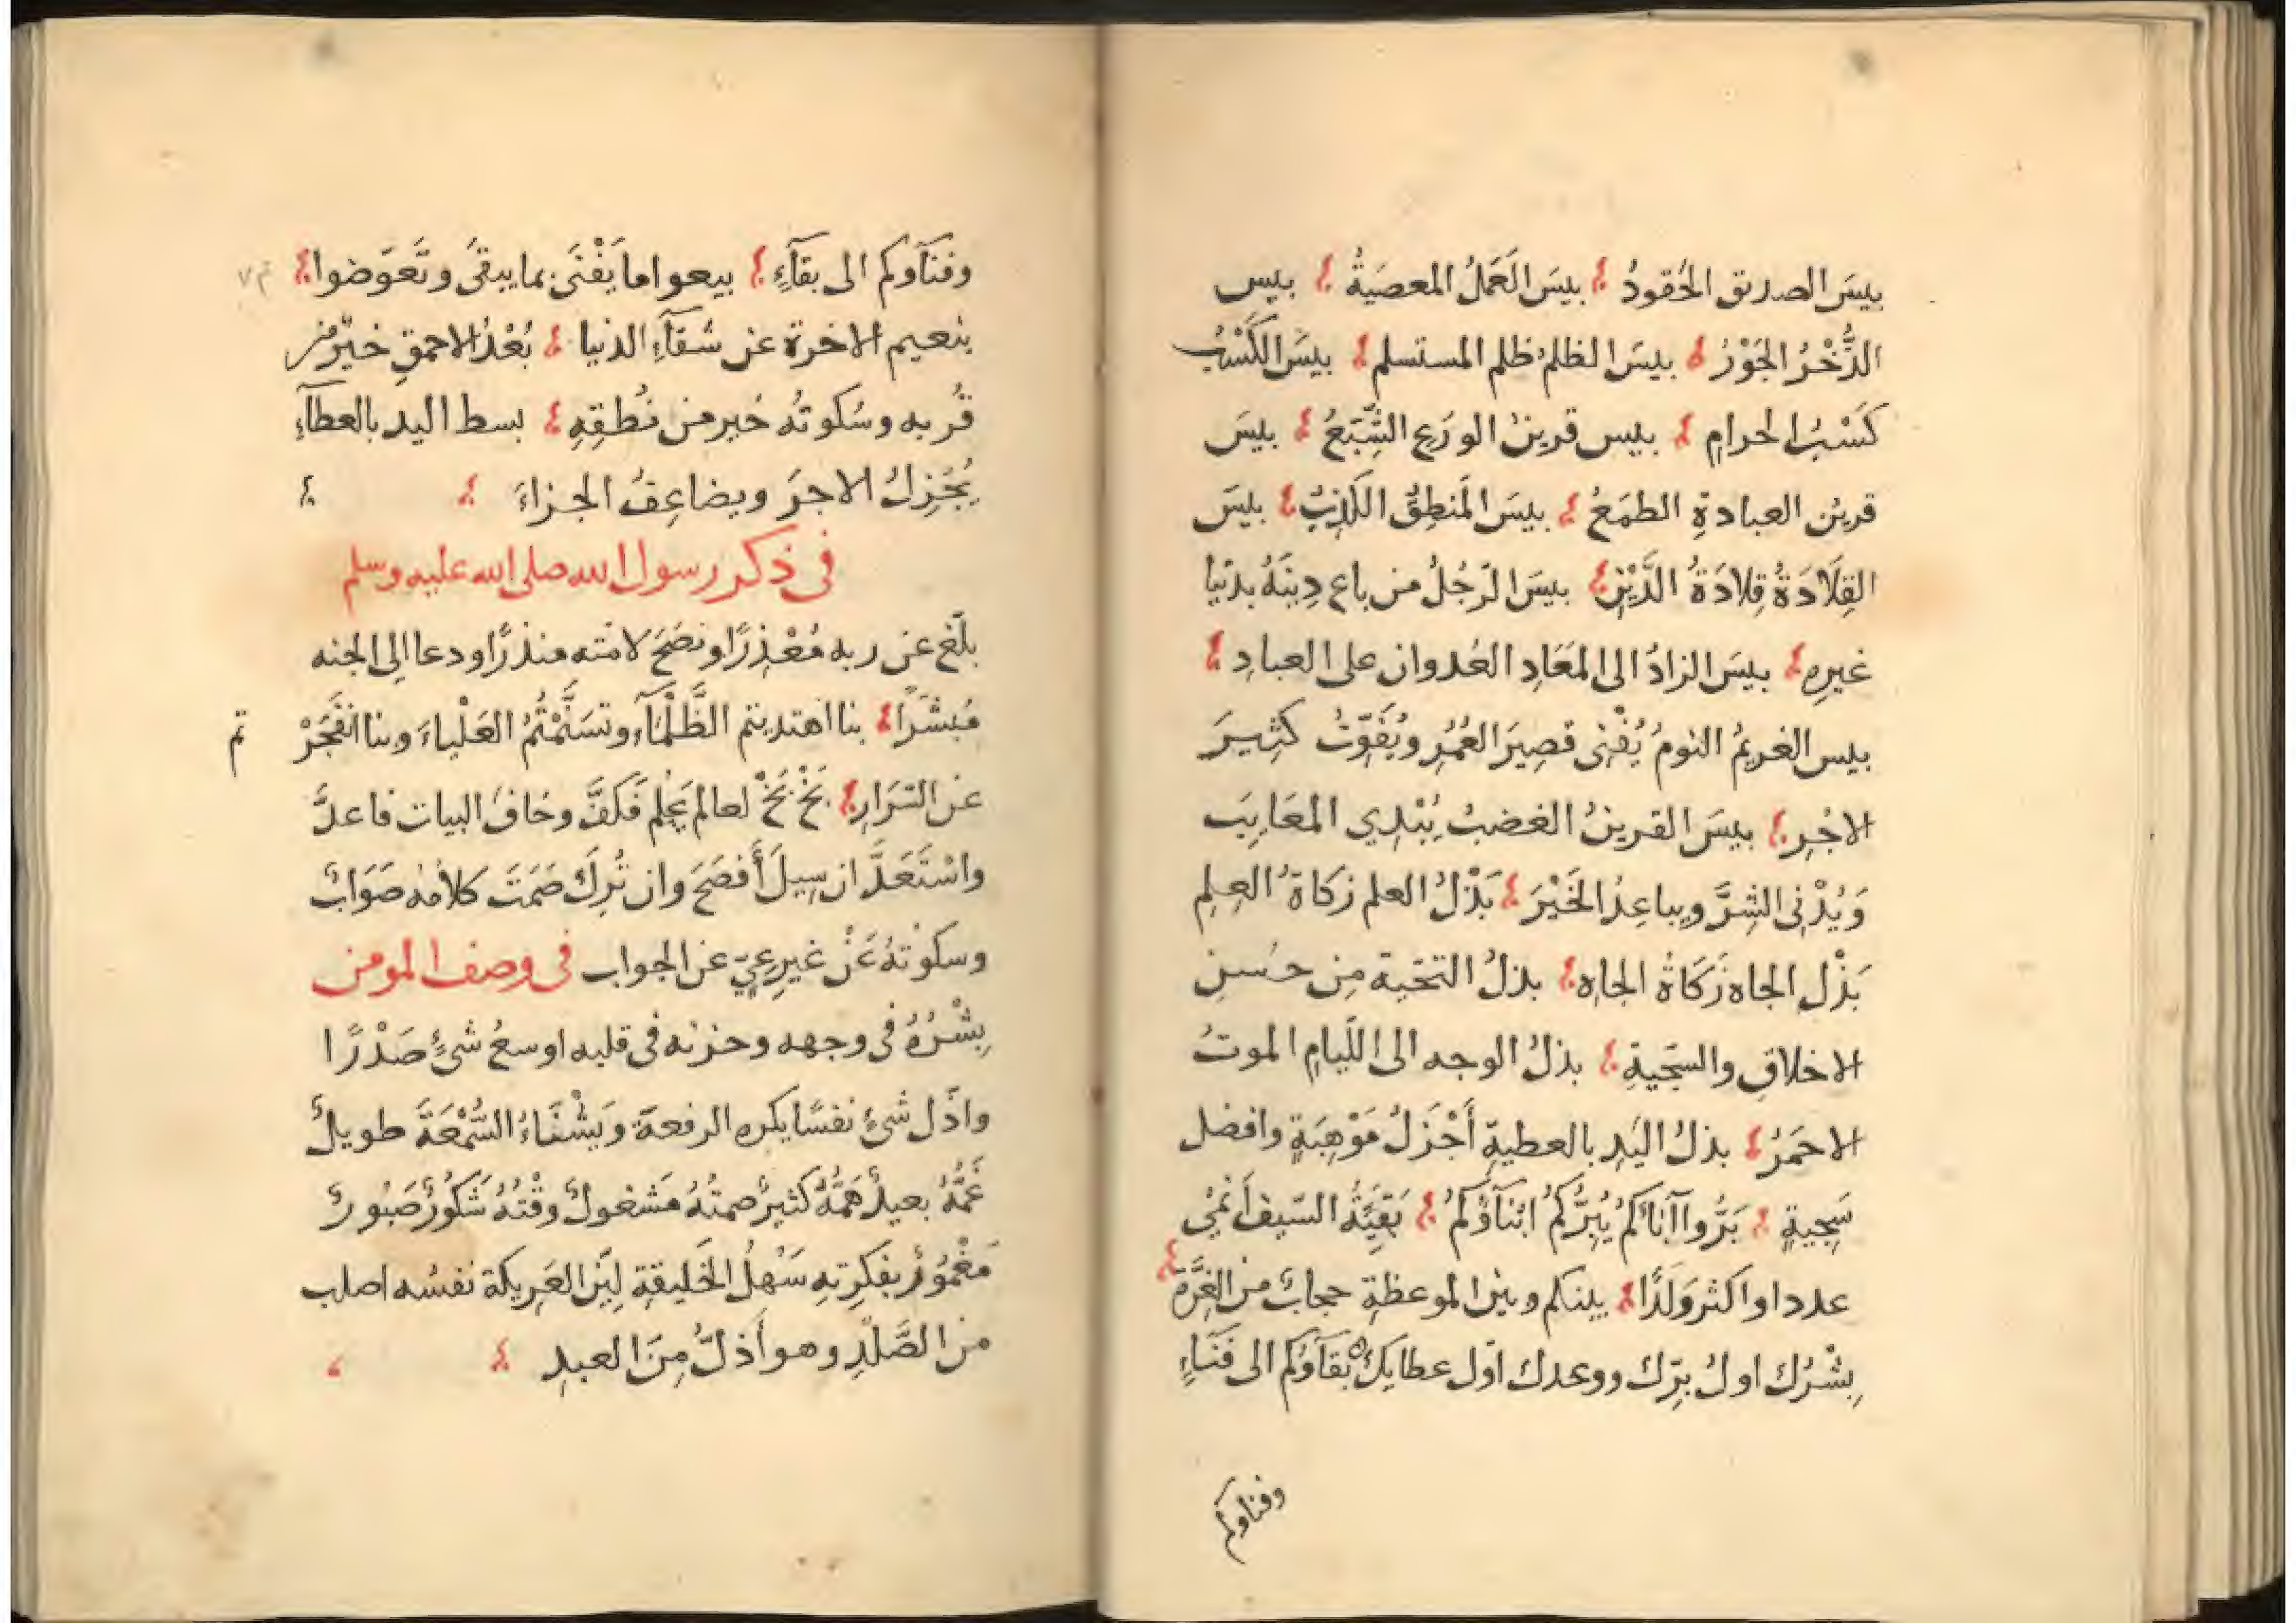 بيسَ الصديق الحُقودُ ؛ بيسَ العَمَلُ المعصيَةُ ؛ بيس
الذُّخْرُ الجَوْرُ ؛ بيسَ الظلمُ ظلم المستسلم ؛ بيسَ الكَسْبُ
كَسْبُ الحرامِ ؛ بيس قرينُ الورَعِ الشِّبَعُ ؛ بيسَ
قرينُ العبادةِ الطمَعُ ؛ بيسَ المَنطِقُ الكَذِبُ ؛ بيسَ
القِلَادَةُ قِلادَةُ الدَّيْنِ ؛ بيسَ الرّجُلُ من باع دِينَهُ بدنيا
غيرِهِ ؛ بيسَ الزادُ الى المَعَادِ العُدوان على العبادِ ؛
بيس الغريمُ النومُ يُفْنِى قصِيرَ العُمُرِ ويُفَوِّتُ كثِيرَ
الاجْرِ ؛ بيسَ القرينُ الغضبُ يُبْدِي المعَايِبَ
وَيُدْنِى الشِرَّ ويباعِدُ الخَيْرَ ؛ بَذْلُ العلم زكاةُ العِلمِ
بَذْل الجاه زَكَاةُ الجاهِ ؛ بذلُ التحَية مِن حسُنِ
الاخلاقِ والسَّجيةِ ؛ بذلُ الوجه الى اللّيامِ الموتُ
الاحمَرُ ؛ بذلُ اليَدِ بالعطيةِ أَجْزَلُ مَوْهِبَةٍ وافضل
سَجِيةٍ ؛ بَرُّوا آبَاكُمْ يُبِرُّكُمُ ابْنَآؤُكُمْ ؛ بَقِيَّةُ السّيف أَنْمَى
عددا واكثر وَلَدًا ؛ بينكم وبيْن الموعظةِ حجابٌ من الغِرَّةِ ؛
بِشْرُك اولُ بِرّك ووعدك اوّل عطايك ه بَقآؤكم الى فَنَاءٍ
وفناوكم
وفنَآوكم الى بقآءٍ ؛ بيعوا ما يَفْنَى بما يبقىَ وتَعوّضوا ؛
بنعيم الاخرة عن شقآءِ الدنيا ؛ بُعْدُ الاحمقِ خيرٌ من
قُربه وسُكوتُه خير من نُطقِهِ ؛ بسط اليد بالعطآءِ
يُجْزِلُ الاجرَ ويضاعِفُ الجزاءَ ؛ ؛
فى ذكر رسول الله صلى الله عليه وسلم
بلّغ عن ربه مُعْذِرًا ونصَحَ لامّته منذرًا ودعا الى الجنه
مُبَشّرًا ؛ بنا اهتديتم الظَّلْمَآءَ وتسَنَّمْتُمُ العَلْياءَ وبنا انفَجَرْ تم
عن السّرَارِ ؛ بَخْ بَخْ لعالم عَلِمَ فكَفَّ وخافَ البيات فاعدَّ
واسْتَعَدَّ ان سِيلَ أَفصَحَ وان تُرِكَ صَمَتَ كلامُه صَوَابٌ
وسكوتُهُ عَنْ غيرِ عِيّ عن الجواب فى وصف المومن
بِشْرُهُ فى وجهه وحزنه فى قلبه اوسعُ شئٍ صَدْرًا
واذَل شئٍ نفسًا يكره الرفعة وَيَشْنَاءُ السُّمْعَةَ طويلٌ
غَمُّهُ بعيدٌ هَمّهُ كثيرٌ صمتُهُ مَشغولٌ وقْتُهُ شَكُورٌ صَبُورٌ
مَغْمُورٌ بفكرتِهِ سَهلُ الخَليقةِ ليّن العَرِيكة نفسُه اصلب
من الصَّلْدِ وهو أَذلُّ مِنَ العبدِ ؛